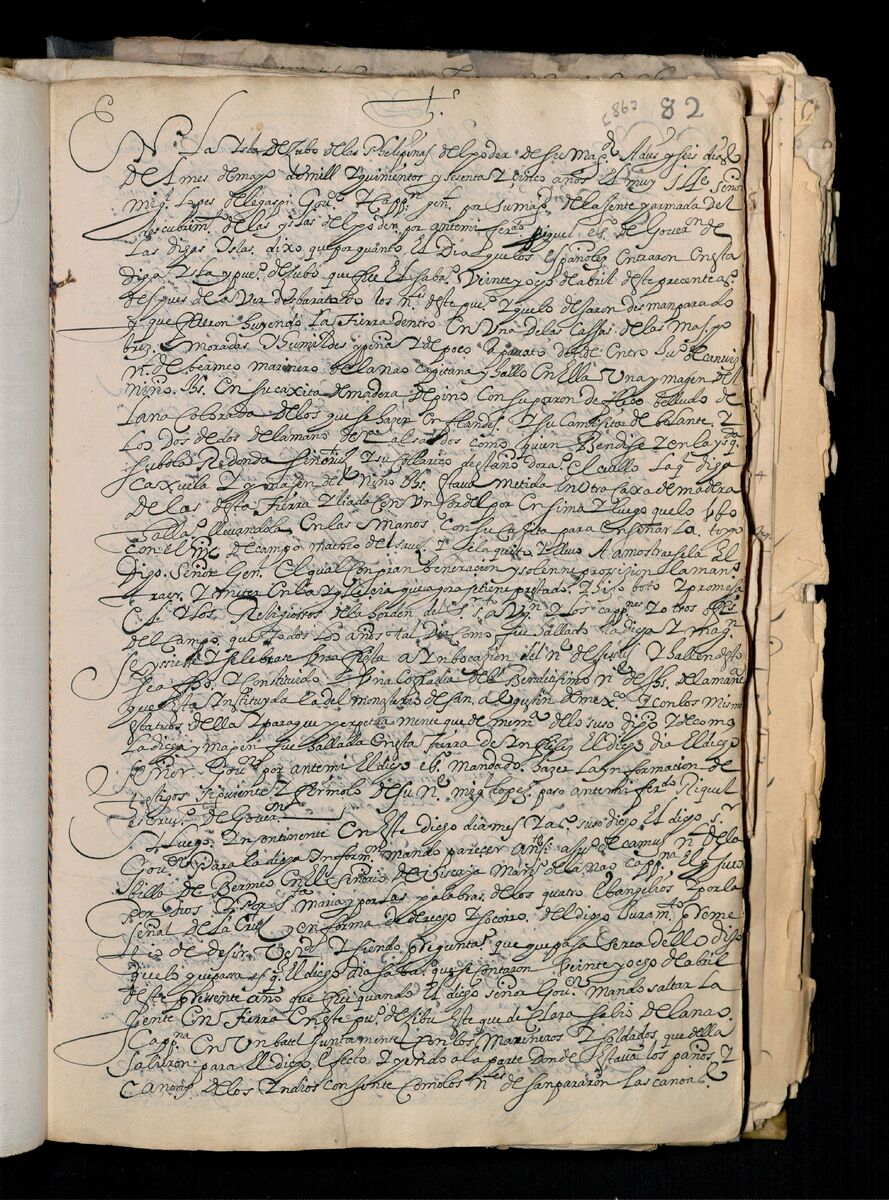 82
En la ysla de Çubo de las Phelipinas del poder de su mag.d A dies y seis dias
del mes de mayo de mill y quinientos y sesenta y cinco años el muy Ill.e señor
mig.l lopes de legaspi Gou.or y Capp.n gen.l por su mag.d de la gente y armada del
descubrim.o de las yslas del poniente por ante mi fer.do Riquel es.no de Gouer.on de
las dichas yslas dixo que por quanto el dia que los españoles entraron en esta
dicha ysla y pue.o de Çubo que fue el saba.o veinte y ocho de abril deste precente a.o
despues de aver desbaratado los n.es deste pue.o y quelo dexaron desmanparado
y que fueron huyendo la tierra dentro En una de las cassas de las mas po
bres moradas y humildes y pequeña y de poco aparato donde entro Ju.o de camuz
n.l de bermeo marinero de la nao capitana y hallo en ella una ymagen del
niño Jhs. en su caxita de madera de pino con su gorron de flueco belludo de
lana colorada de los que se hazen en flandes y su camisita de bolante y
los dos dedos de la mano der.a alsados como quien bendise y en la ysq.da
su bola redonda sin cruz y su collarico de estaño dora.o el cuello la q.l dicha
caxuela y ymagen del niño Jhs. estava metida en otra caxa de madera
de las desta tierra y liada con un cordel por en sima y luego que lo ubo
halla.o llevandola en las manos con su caxita para enseñarla topo
con el m.e de campo matheo del saus y se la quito y llevo A amostrarsela al
dicho señor Gen.l el qual con gran beneracion y solenne prosision la mando
traer y meter en la yglesia que agora se tiene prestado y hiso boto y promesa
el y los religiossos de la horden del s.r s.to a Ag.n y los capp.nes y otros ofi.es
del campo que todos los años tal dia como fue hallado la dicha ymag.n
se hysiese y selebrase una fiesta a ynbocasion del n.e de Jesus y alliende desto
sea fho. y constituido una cofradia del Benditisimo n.e de Jhs. de la manera
que esta ynstituyda la del monesterio de san agustin de mex.co y con los mismos
estatutos della y para que perpetuamente quede mem.a de lo suso dicho y de como
la dicha ymagen fue hallada en esta tierra de ynfieles el dicho dia el dicho
señor Gou.or por ante mi el dicho es.no mandado hazer la ynformacion de
testigos siguiente y firmolo de su n.e mig.l lopes paso ante mi fer.do Riquel
escriu.o de Gouer.on
E luego yncontinente en este dicho dia mes y a.o suso dicho el dicho s.r
Gou.or para la dicha ynform.on mando parecer ante si a Ju.o de camus n.l de la
billa de Bermeo en el señorio de biscaya marin.o de la nao capp.na el q.l juro
por dios y por s.ta maria y por las palabras de los quatro evangelios y por la
señal de la cruz en forma de derecho y so cargo del dicho Juram.to prome
tio de desir ver.d y siendo pregunta.o que que pasa serca dello dixo
que lo que pasa es q.e el dicho dia saba.o que se contaron veinte y ocho de abril
deste pressente año que fue quando el dicho señor Gou.or mando saltar la
gente en tierra en este pu.o de Çibu este que declara salio de la nao
Capp.na en un batel juntamente con los marineros y soldados que della
salieron para el dicho efecto y yendo a la parte donde estava los paraos y
canoas de los yndios con gente como los n.es desanpararon las canoas